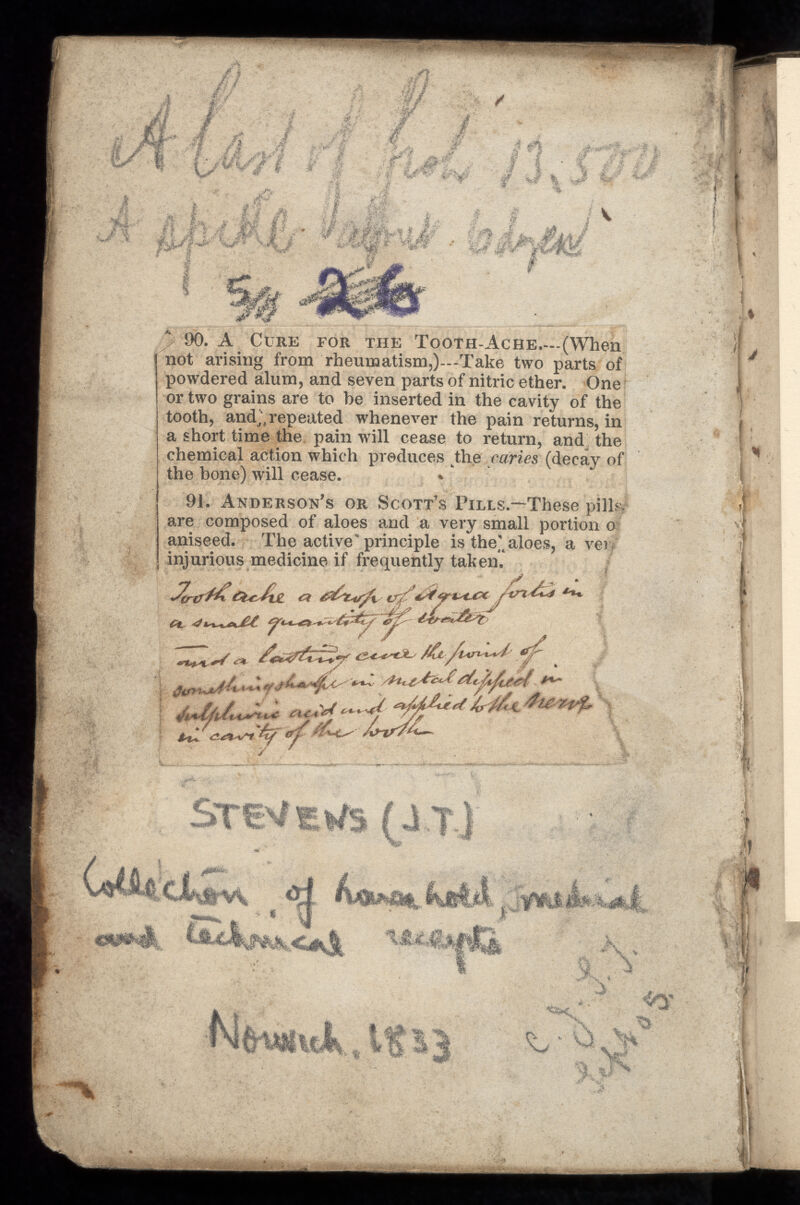 A last of fish 13,500
A spike
26
90. A CURE FOR THE TOOTH-ACHE.---(When
not arising from rheumatism,)---Take two parts of
powdered alum, and seven parts of nitric ether. One
or two grains are to be inserted in the cavity of the
tooth, and, repeated whenever the pain returns, in
a short time the pain will cease to return, and the
chemical action which produces the caries (decay of
the bone) will cease.
91. ANDERSON'S OR SCOTT'S PILLS.—These pills
are composed of aloes and a very small portion o
aniseed. The active principle is the aloes, a ver
injurious medicine if frequently taken.
Tooth ache a drop of Aqua fortis in
a small quantity of water
and a lasting cure the point of
something sharpe in metal dipped in
sulphuric acid and applied to the nerve
in cavity of the tooth
STEVENS (J.T.)
Collection of household, medical
and technical receipts
Norwich, 1833